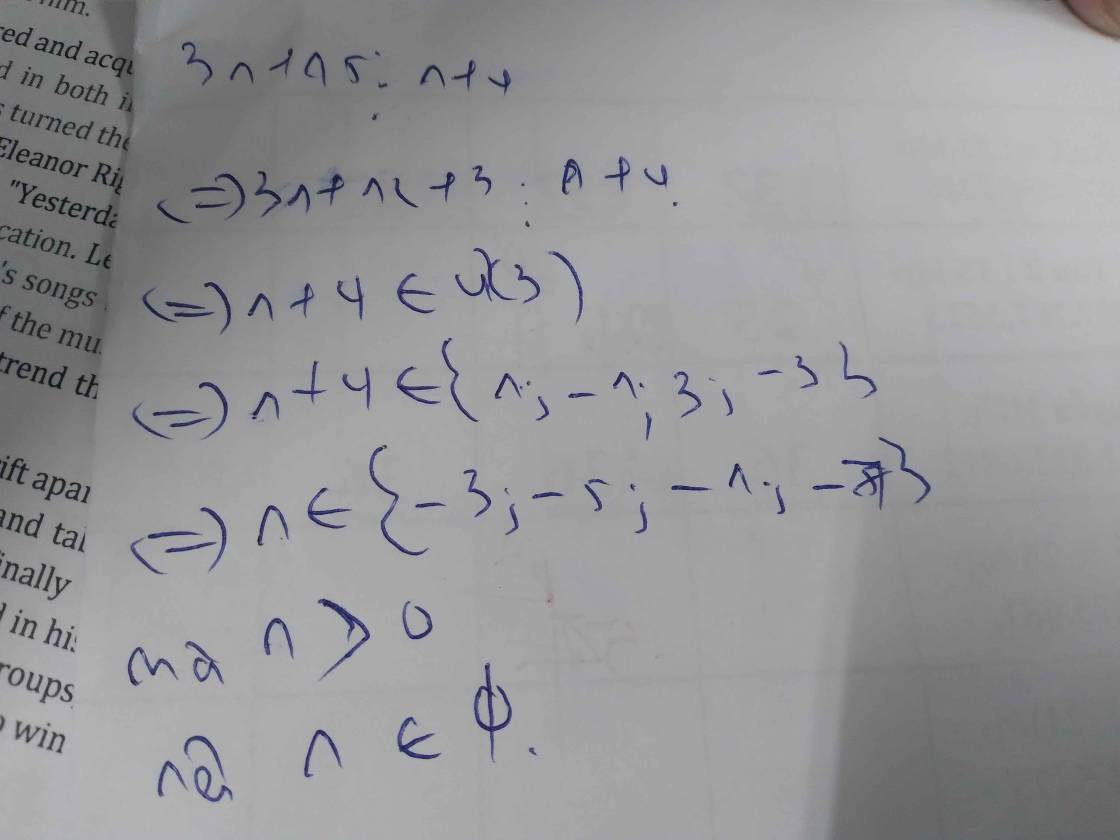 red and acqu
d in both i
s turned the
Eleanor Rig
"Yesterda
cation. Le
's songs
f the mu
trend th
ift apar
and tal
inally
l in his
roups,
o win
3n + 15 ⋮ n + 4
<=> 3n + 12 + 3 ⋮ n + 4.
<=> n + 4 ∈ Ư(3)
<=> n + 4 ∈ {1; -1; 3; -3}
<=> n ∈ {-3; -5; -1; -7}
mà n > 0
nên n ∈ ϕ.